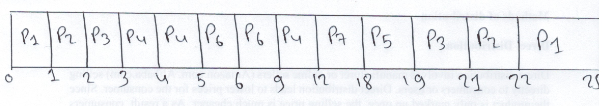 P1 P2 P3 P4 P4 P6 P6 P4 P7 P5 P3 P2 P1
0 1 2 3 4 5 6 9 12 18 19 21 22